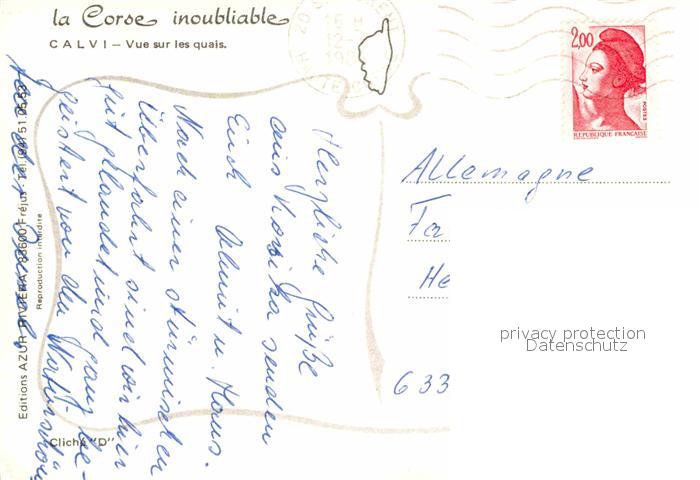 la Corse inoubliable
CALVI – Vue sur les quais.
2,00
POSTES
REPUBLIQUE FRANÇAISE
Allemagne
Fa
He
633
privacy protection
Datenschutz
Herzliche Grüße
aus Korsika senden
Euch Almut u. Klaus.
Nach einer stürmischen
Überfahrt sind wir hier
gut gelandet und ganz be-
geistert von der
Editions AZUR RIVIERA, 83600 Fréjus. Tél. (94) 51.05.53
Reproduction interdite
Cliché "D"